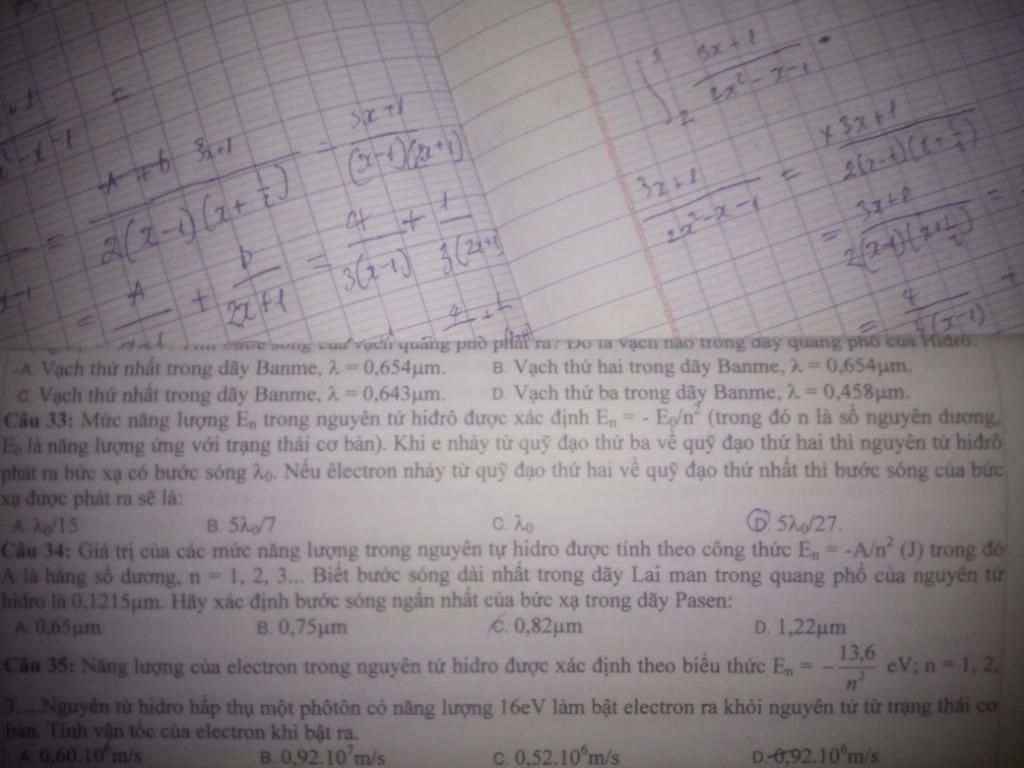 3x+1 / 2(x-1)(x+1/2) = 3x+1 / (x-1)(2x+1)
= A / x-1 + b / 2x+1 = 4 / 3(x-1) + 1 / 3(2x+1)
∫ 3 2 3x+1 / 2x²-x-1
3x+1 / 2x²-x-1 = 3x+1 / 2(x-1)(x+1/2)
= 3x+1 / 2(x-1)(x+1/2) =
bước sóng của vạch quang phổ phát ra? Đó là vạch nào trong dãy quang phổ của Hidrô.
A. Vạch thứ nhất trong dãy Banme, λ = 0,654μm. B. Vạch thứ hai trong dãy Banme, λ = 0,654μm.
C. Vạch thứ nhất trong dãy Banme, λ = 0,643μm. D. Vạch thứ ba trong dãy Banme, λ = 0,458μm.
Câu 33: Mức năng lượng Eₙ trong nguyên tử hiđrô được xác định Eₙ = - E₀/n² (trong đó n là số nguyên dương,
E₀ là năng lượng ứng với trạng thái cơ bản). Khi e nhảy từ quỹ đạo thứ ba về quỹ đạo thứ hai thì nguyên tử hiđrô
phát ra bức xạ có bước sóng λ₀. Nếu êlectron nhảy từ quỹ đạo thứ hai về quỹ đạo thứ nhất thì bước sóng của bức
xạ được phát ra sẽ là:
A. λ₀/15 B. 5λ₀/7 C. λ₀ D. 5λ₀/27.
Câu 34: Giá trị của các mức năng lượng trong nguyên tự hidro được tính theo công thức Eₙ = -A/n² (J) trong đó
A là hằng số dương, n = 1, 2, 3... Biết bước sóng dài nhất trong dãy Lai man trong quang phổ của nguyên tử
hidro là 0,1215μm. Hãy xác định bước sóng ngắn nhất của bức xạ trong dãy Pasen:
A. 0,65μm B. 0,75μm C. 0,82μm D. 1,22μm
Câu 35: Năng lượng của electron trong nguyên tử hidro được xác định theo biểu thức Eₙ = -13,6/n² eV; n = 1, 2,
3.....Nguyên tử hidro hấp thụ một phôtôn có năng lượng 16eV làm bật electron ra khỏi nguyên tử từ trạng thái cơ
bản. Tính vận tốc của electron khi bật ra.
A. 0,60.10⁶m/s B. 0,92.10⁷m/s C. 0,52.10⁶m/s D. 0,92.10⁶m/s